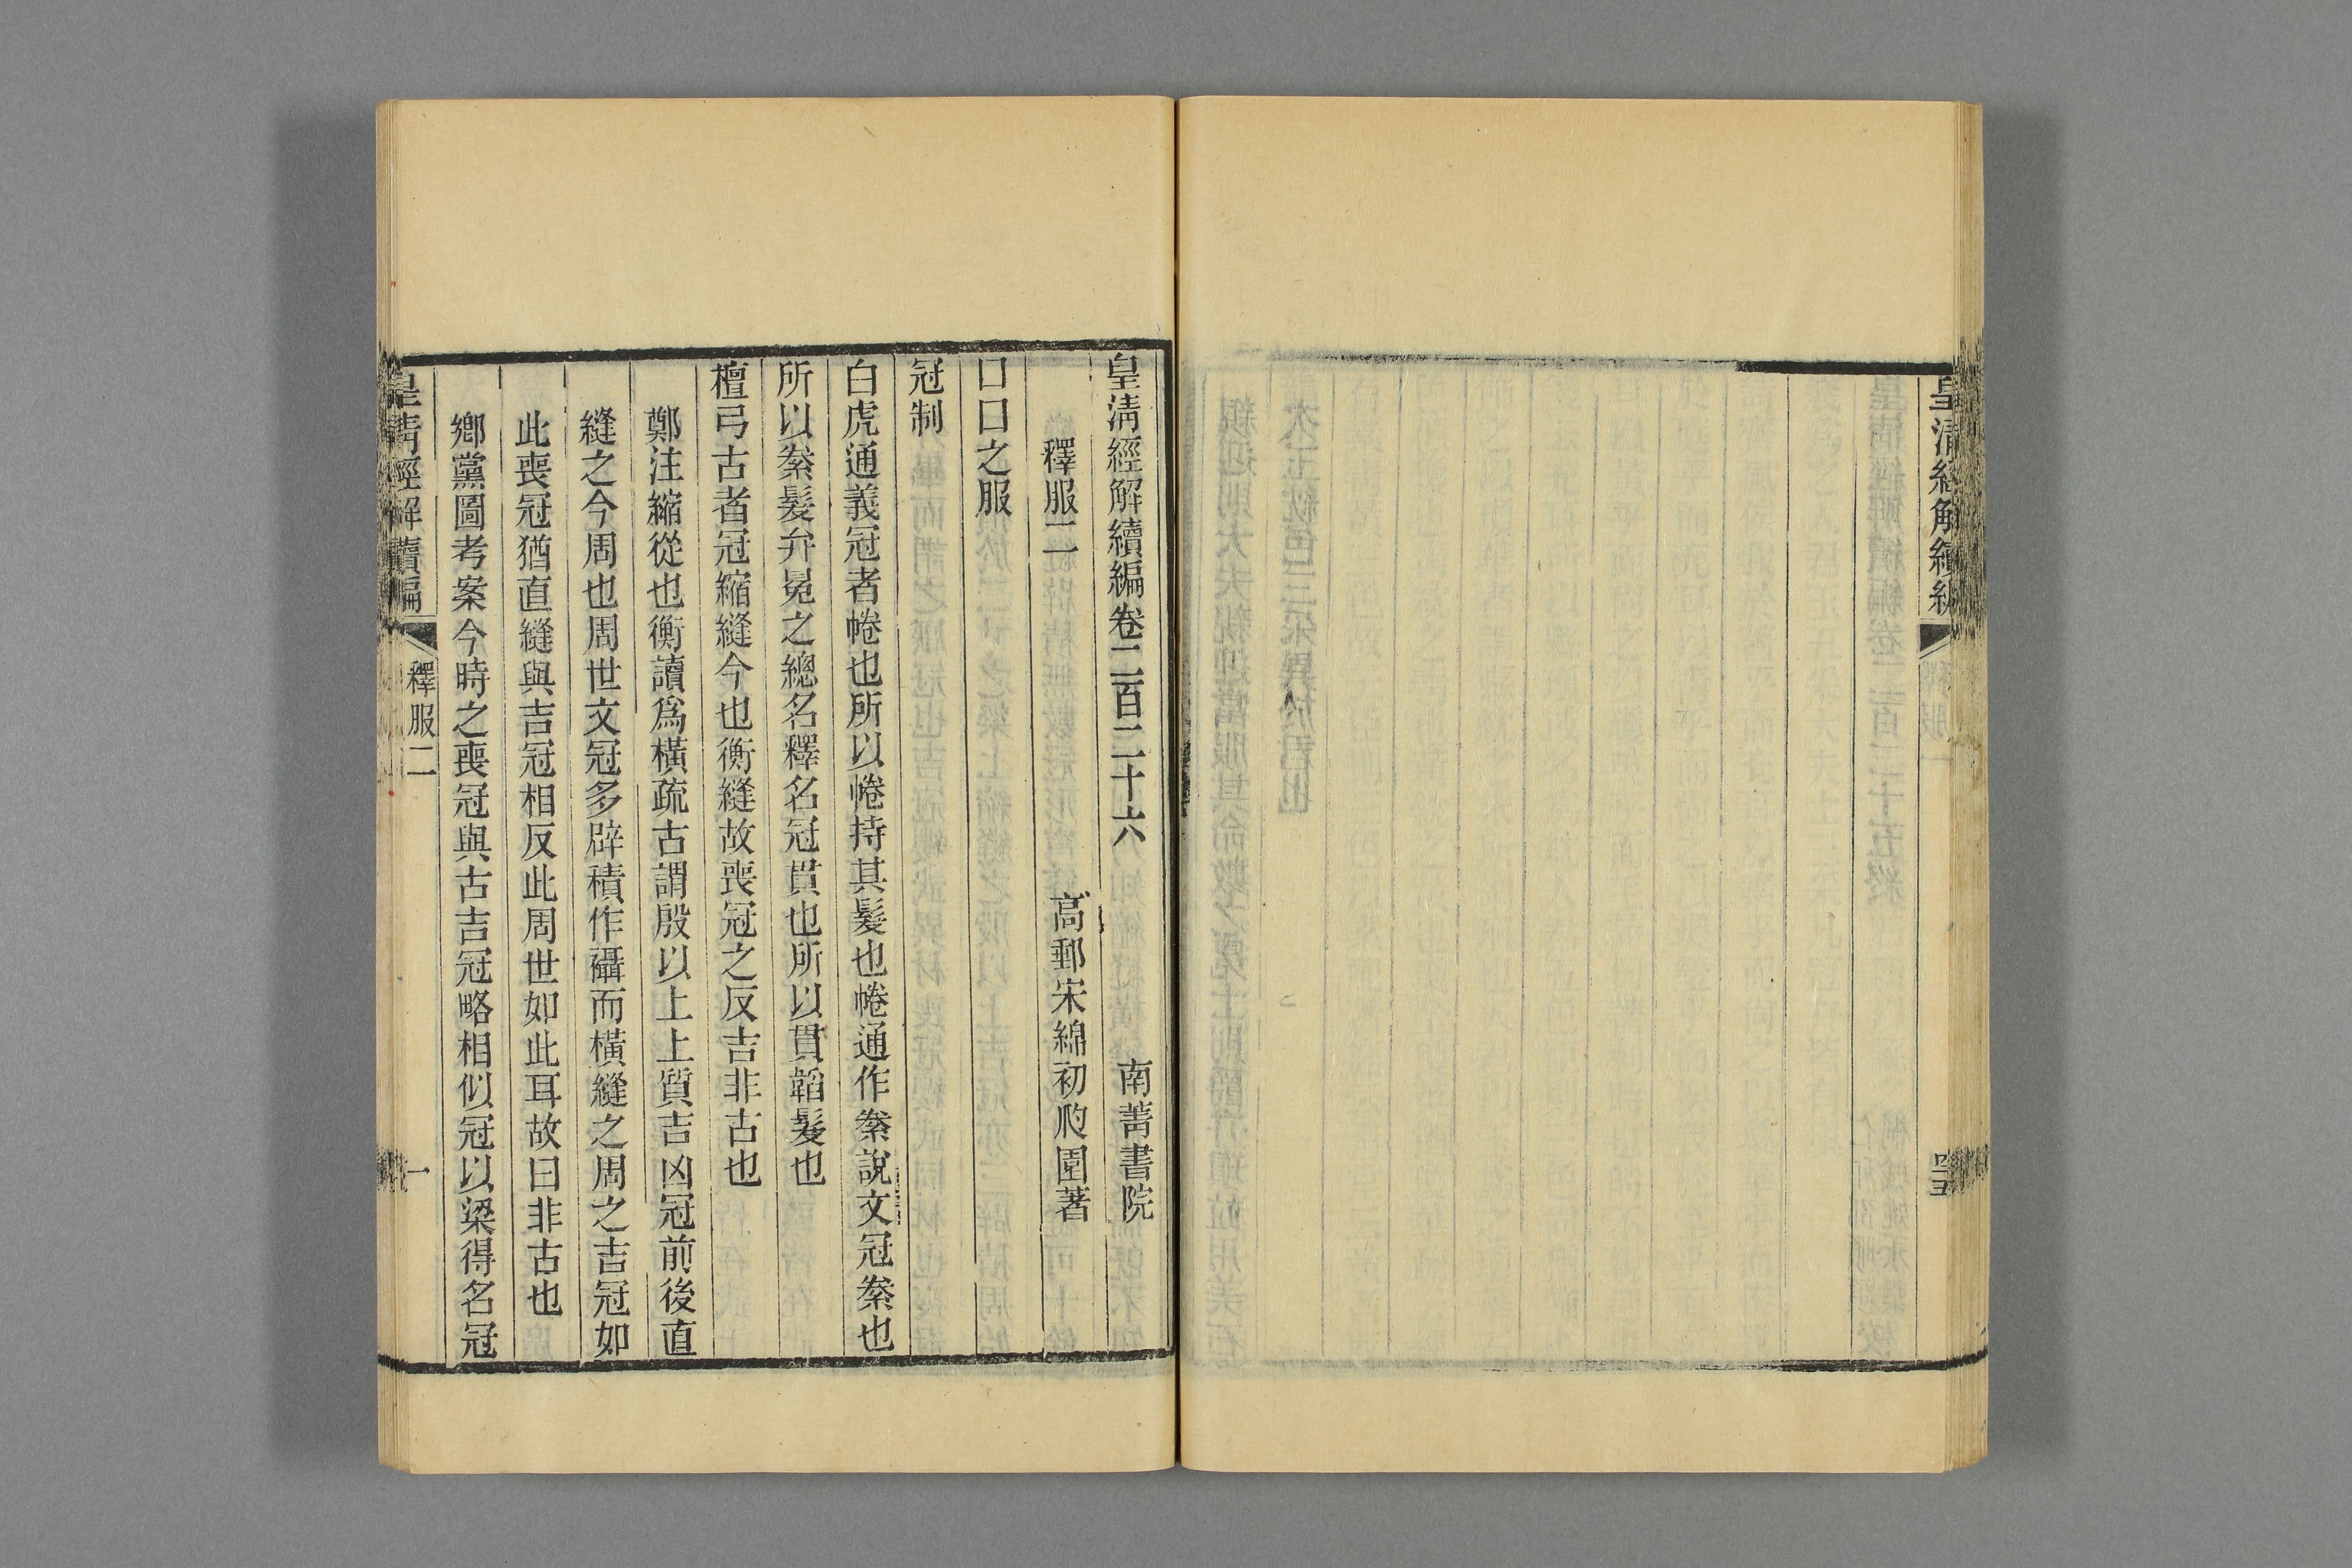 皇清經解續編
皇清經解續編卷二百二十六
南菁書院
釋服二
高郵宋綿初瓞園著
口口之服
冠制
白虎通義冠者㡓也所以㡓持其髮也㡓通作絭說文冠絭也
所以絭髮弁冕之總名釋名冠貫也所以貫韜髮也
檀弓古者冠縮縫今也衡縫故喪冠之反吉非古也
鄭注縮從也衡讀爲橫疏古謂殷以上上質吉凶冠前後直
縫之今周也周世文冠多辟積作襵而橫縫之周之吉冠如
此喪冠猶直縫與吉冠相反此周世如此耳故曰非古也
鄉黨圖考案今時之喪冠與古吉冠略相似冠以梁得名冠
皇清經解續編
釋服二
一